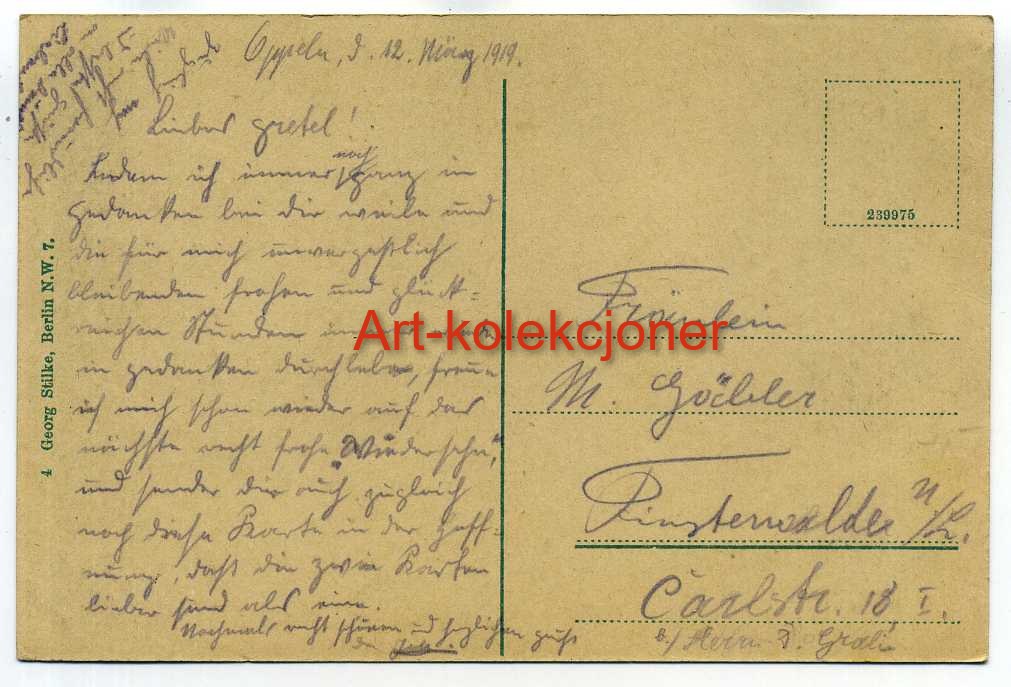 Oppeln, d. 12. März 1919.
Liebes Gretel!
Indem ich immer noch ganz in
Gedanken bei dir weile und
die für mich unvergeßlich
bleibenden frohen und glück-
reichen Stunden immer
in Gedanken durchlebe, freue
ich mich schon wieder auf das
nächste recht frohe "Wiedersehn",
und sende dir auch zugleich
noch diese Karte in der Hoff-
nung, daß die zwei Karten
lieber sind als eine.
Nochmals recht schönen und herzlichen Gruß
4 Georg Stilke, Berlin N.W. 7.
239975
Fräulein
M. Gäbler
Finsterwalde N/L.
Carlstr. 18, I.
b./ Herrn
Art-kolekcjoner